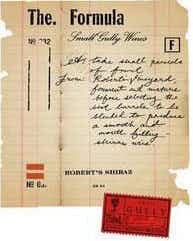 The. Formula
Small Gully Wines
Nº
F
take small parcels
of fruit
from Roberts Vineyard,
ferment and mature
before selecting the
best barrels to be
blended to produce
a smooth and
mouth filling
shiraz wine.
ROBERT'S SHIRAZ
Nº
GULLY